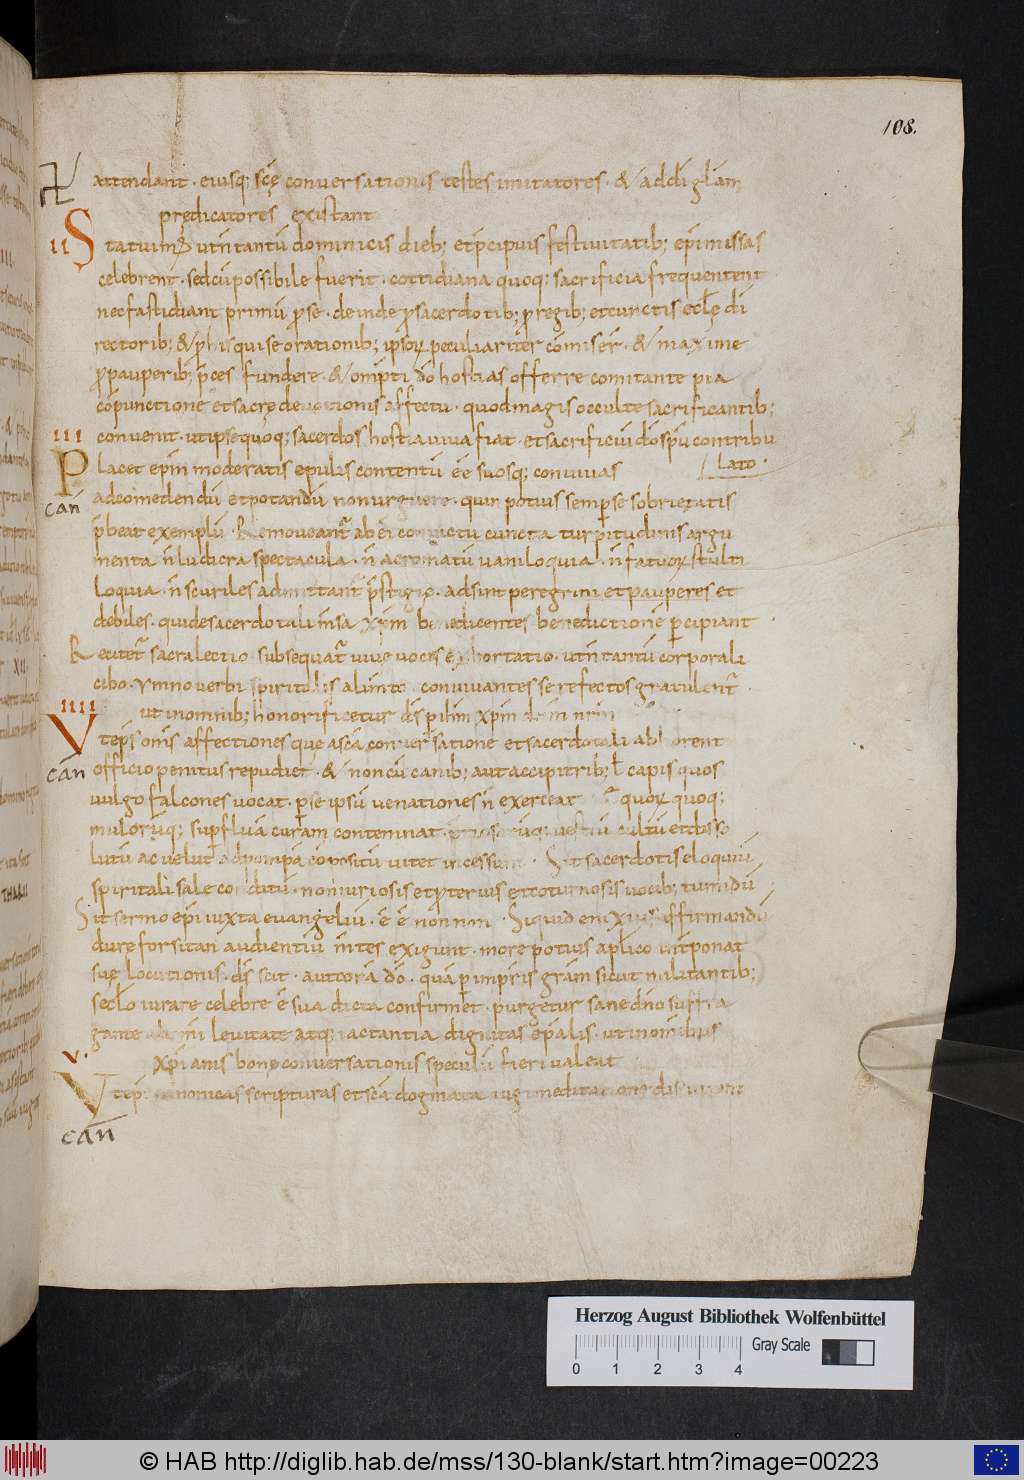 108.
attendant · eiusq; scę conversationis testes imitatores · & addi glam
prędicatores existant
II Statuim; ut n tantū dominicis dieb; et pcipuis festivitatib; epi missas
celebrent · sed cū possibile fuerit · cottidiana quoq; sacrificia frequentent
nec fastidiant primū p se · deinde p sacerdotib; p regib; et cunctis ecclę di
rectorib; & p his qui se orationib; ipsoꝝ peculiariter comiser̄ · & maxime
p pauperib; pces fundere · & omipti do hostias offerre comitante pia
cōpunctione et sacrę devotionis affectu · quod magis occulte sacrificantib;
III convenit · ut ipse quoq; sacerdos hostia viva fiat · et sacrificiū do spu contribu
lato ·
Placet epm moderatis epulis contentū ēē suosq; convivas
can
ad comedendū et potandū non urguere · quin potius semp se sobrietatis
pbeat exemplū · Removeant̄ ab ei convictu cuncta turpitudinis argu
menta n̄ ludicra spectacula · n̄ acromatū vaniloquia · n̄ fatuoꝝ stulti
loquia · n̄ scurriles admittant̄ pstigię · adsint peregrini et pauperes et
debiles · qui de sacerdotali msa xpm benedicentes benedictionē pcipiant
Recitet̄ sacra lectio · subsequat̄ vive vocis exhortatio · ut n tantū corporali
cibo · ymno verbi spiritalis alimto convivantes se refectos gratulent̄ ·
IIII ut in omnib; honorificetur ds p ihm xpm dnm nrm
Ut eps omis affectiones quę a scā conversatione et sacerdotali abhorrent
can
officio penitus repudiet · & non cū canib; aut accipitrib; ł capis quos
vulgo falcones vocat · p se ipsū venationes n̄ exerceat quoꝝ quoq;
mulorūq; supfluā curam contemnat · vestiū cultū et disso
lutū ac velut ad pompā cōpositū vitet incessum · Sit sacerdotis eloquiū
spiritali sale conditū · non iuriosis et pterius et coturnosis vocib; tumidū
Sit sermo epi iuxta evangeliū · ē ē non non · Siquid eni xius affirmandū
dure forsitan audientiū mtes exigunt · more potius aplico int̄ponat
suę locutionis · ds scit · aut corā do · quā p impris gram sicut militantib;
seclo iurare celebre ē sua dicta confirmet · purgetur sane dno suffra
gante ab mi levitate atq; iactantia dignitas epalis · ut in omibus
V. xpianis bonę conversationis speculū fieri valeat
Ut epi canonicas scripturas et scā dogmata iugi meditatione discutiant
can
Herzog August Bibliothek Wolfenbüttel
Gray Scale
0 1 2 3 4
© HAB http://diglib.hab.de/mss/130-blank/start.htm?image=00223